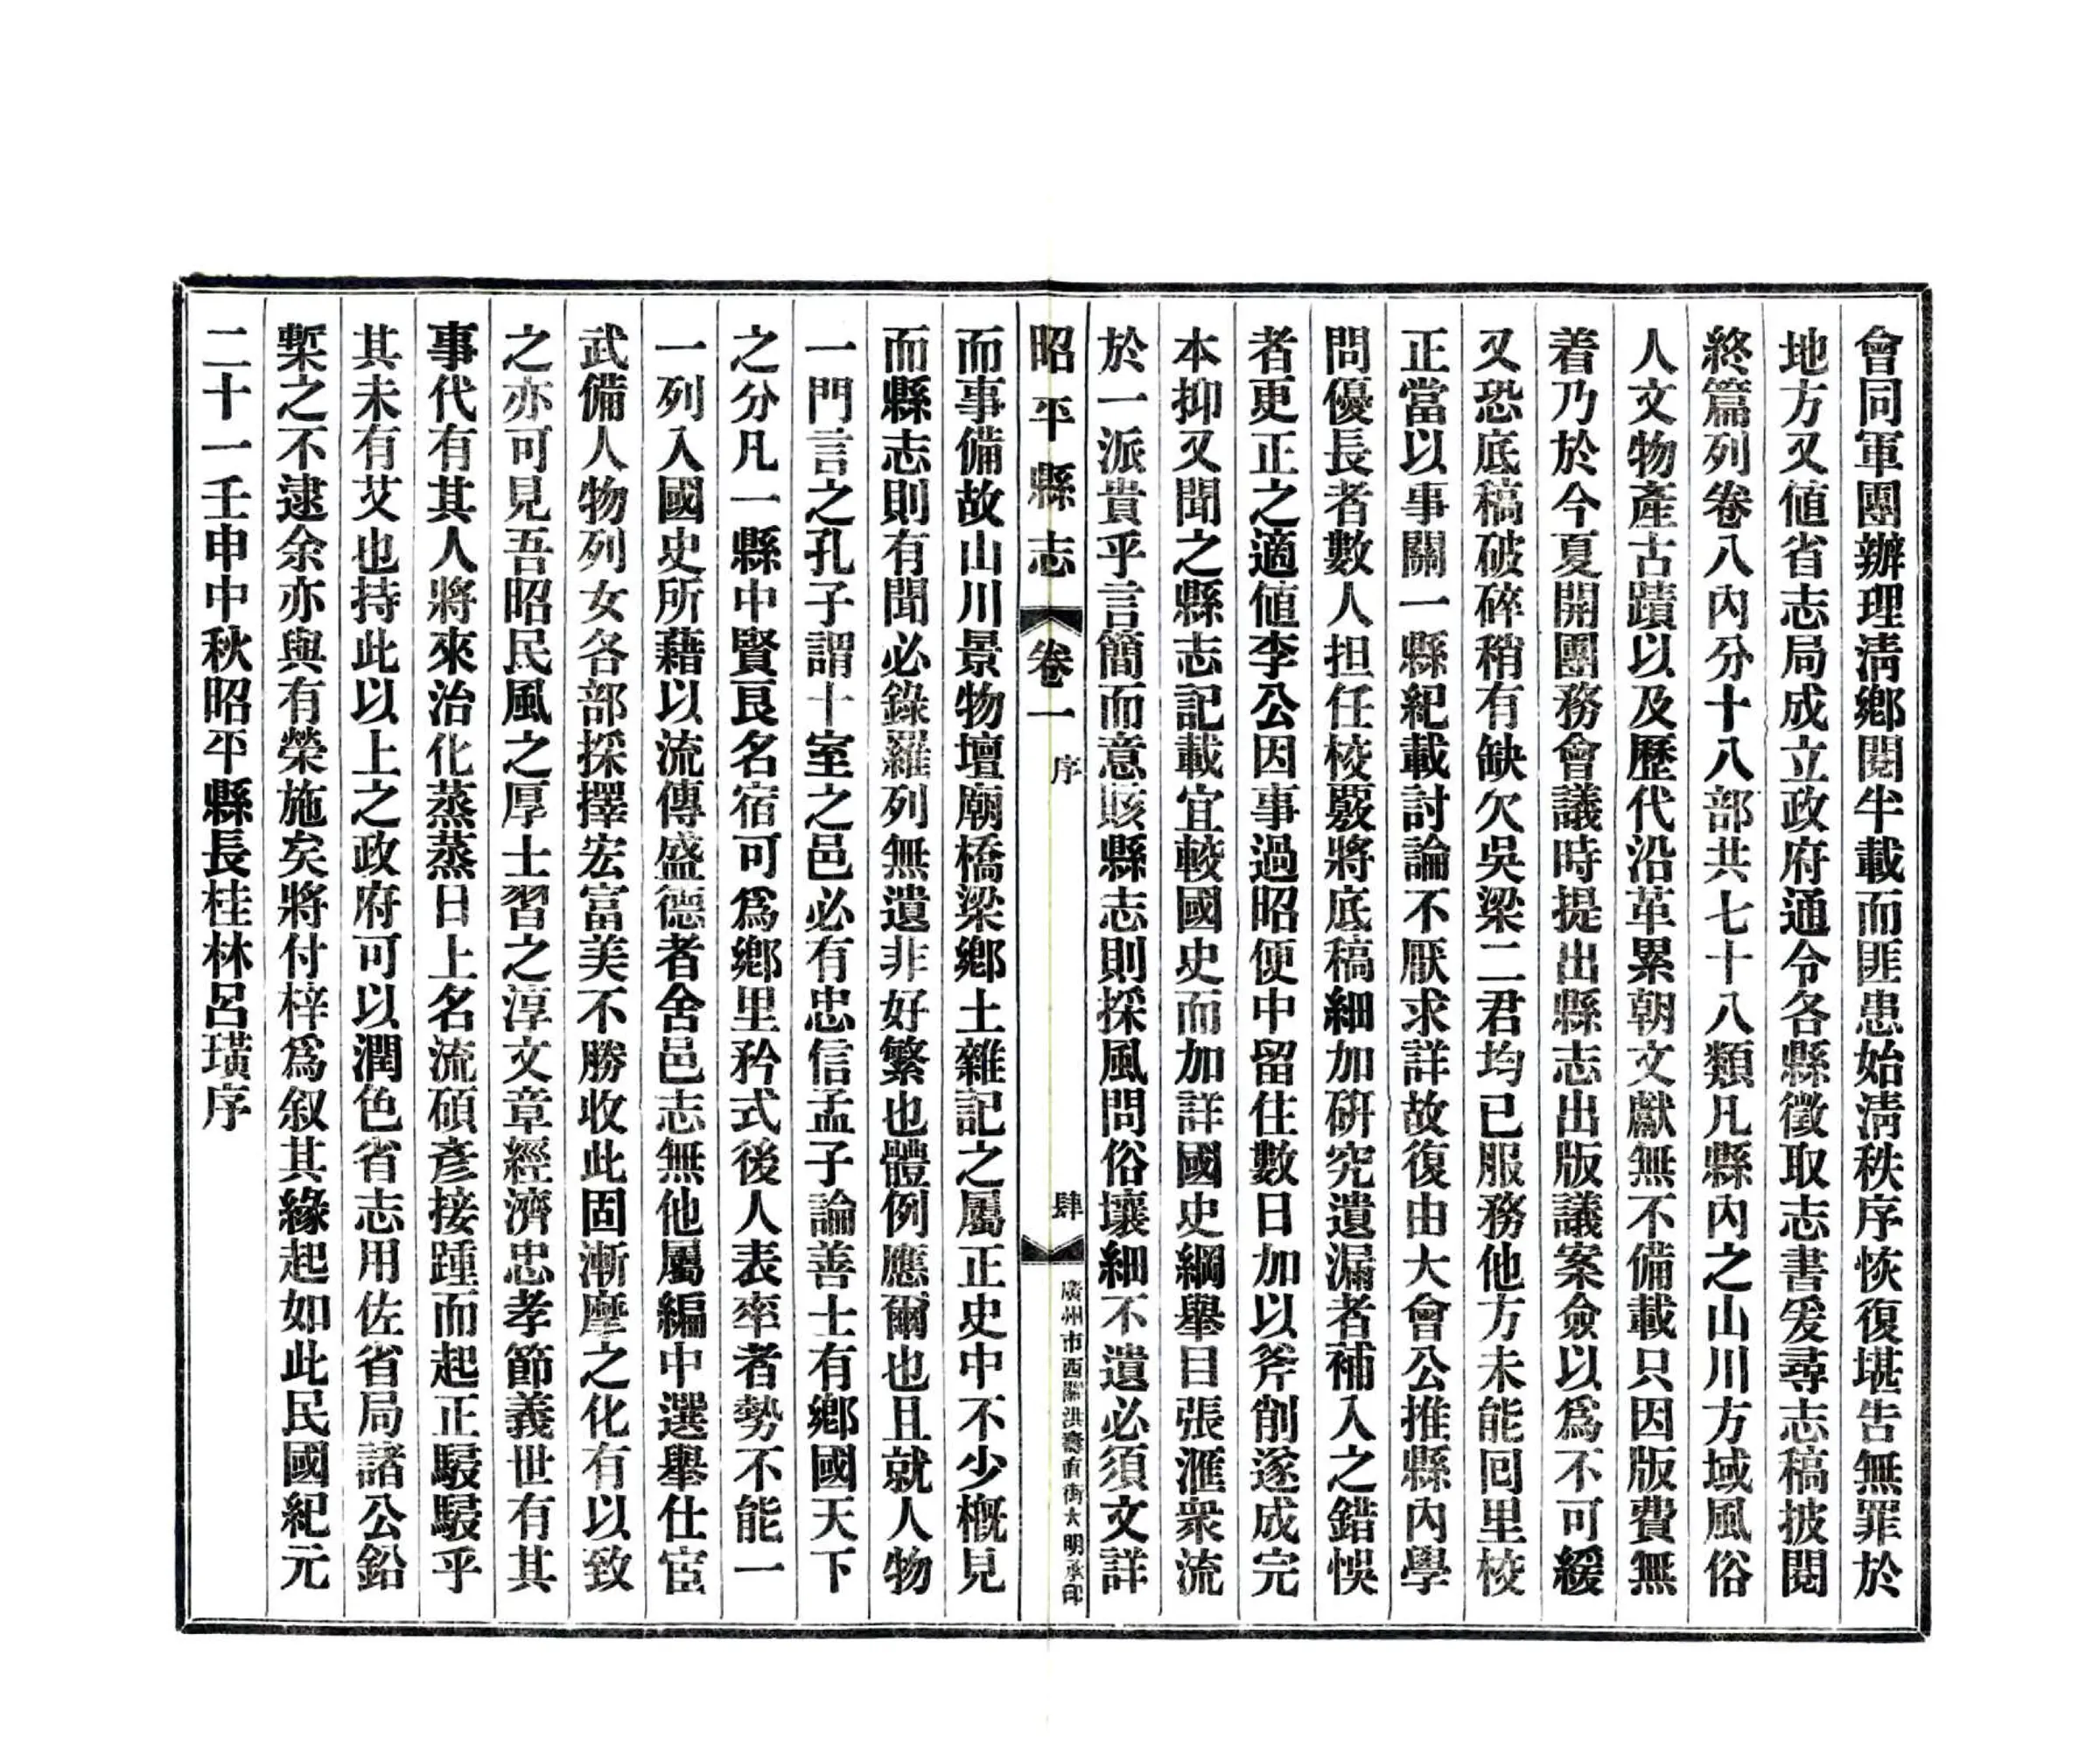 會同軍團辦理淸鄉閱半載而匪患始淸秩序恢復堪告無罪於
地方又値省志局成立政府通令各縣徵取志書爰尋志稿披閱
終篇列卷八內分十八部共七十八類凡縣內之山川方域風俗
人文物產古蹟以及歷代沿革累朝文獻無不備載只因版費無
着乃於今夏開團務會議時提出縣志出版議案僉以爲不可緩
又恐底稿破碎稍有缺欠吳梁二君均已服務他方未能回里校
正當以事關一縣紀載討論不厭求詳故復由大會公推縣內學
問優長者數人担任校覈將底稿細加硏究遺漏者補入之錯悞
者更正之適値李公因事過昭便中留住數日加以斧削遂成完
本抑又聞之縣志記載宜較國史而加詳國史綱舉目張滙衆流
於一派貴乎言簡而意賅縣志則採風問俗壤細不遺必須文詳
昭平縣志 卷一 序 肆 廣州市西關洪壽直街大明承印
而事備故山川景物壇廟橋梁鄉土雜記之屬正史中不少槪見
而縣志則有聞必錄羅列無遺非好繁也體例應爾也且就人物
一門言之孔子謂十室之邑必有忠信孟子論善士有鄉國天下
之分凡一縣中賢良名宿可爲鄉里矜式後人表率者勢不能一
一列入國史所藉以流傳盛德者舍邑志無他屬編中選舉仕宦
武備人物列女各部採擇宏富美不勝收此固漸摩之化有以致
之亦可見吾昭民風之厚士習之淳文章經濟忠孝節義世有其
事代有其人將來治化蒸蒸日上名流碩彥接踵而起正駸駸乎
其未有艾也持此以上之政府可以潤色省志用佐省局諸公鉛
槧之不逮余亦與有榮施矣將付梓爲叙其緣起如此民國紀元
二十一壬申中秋昭平縣長桂林呂璜序